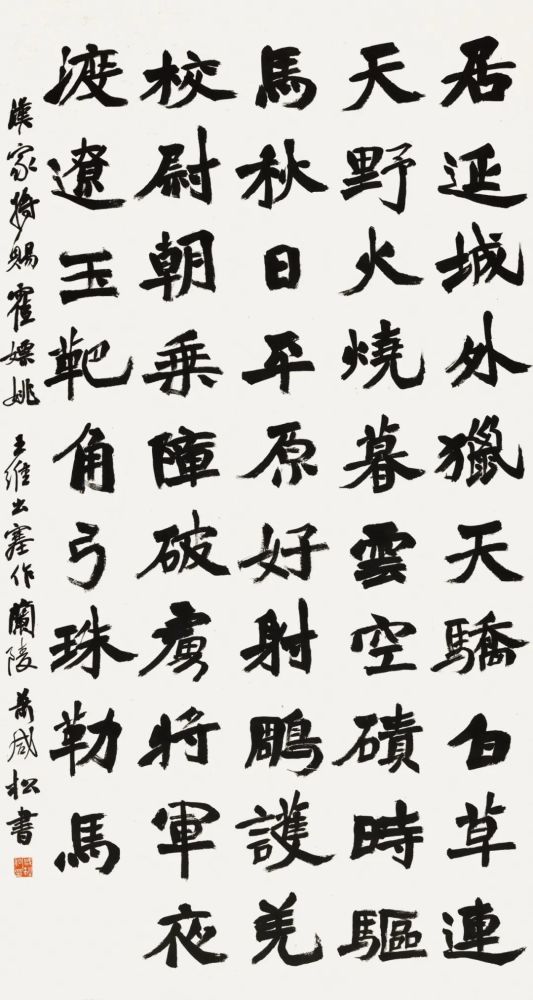 居延城外獵天驕白草連
天野火燒暮雲空磧時驅
馬秋日平原好射鵰護羌
校尉朝乘障破虜將軍夜
渡遼玉靶角弓珠勒馬
漢家將賜霍嫖姚 王維出塞作 蘭陵 蕭 松書